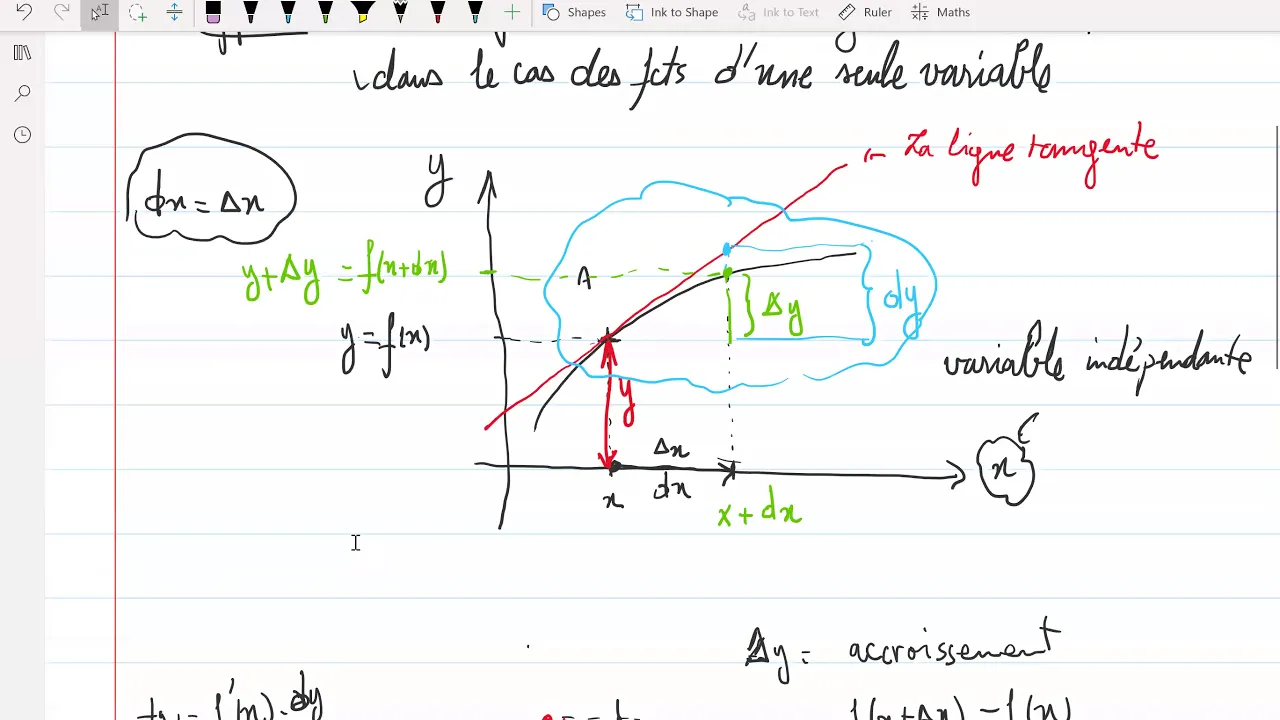 Shapes Ink to Shape Ink to Text Ruler Maths
dans le cas des fcts d'une seule variable
La ligne tangente
y
dx = Δx
y+Δy = f(x+dx)
A
Δy
dy
y = f(x)
variable indépendante
y
Δx
x
x
dx
x + dx
Δy = accroissement
f'(x). dy
f(x+Δx) - f(x)